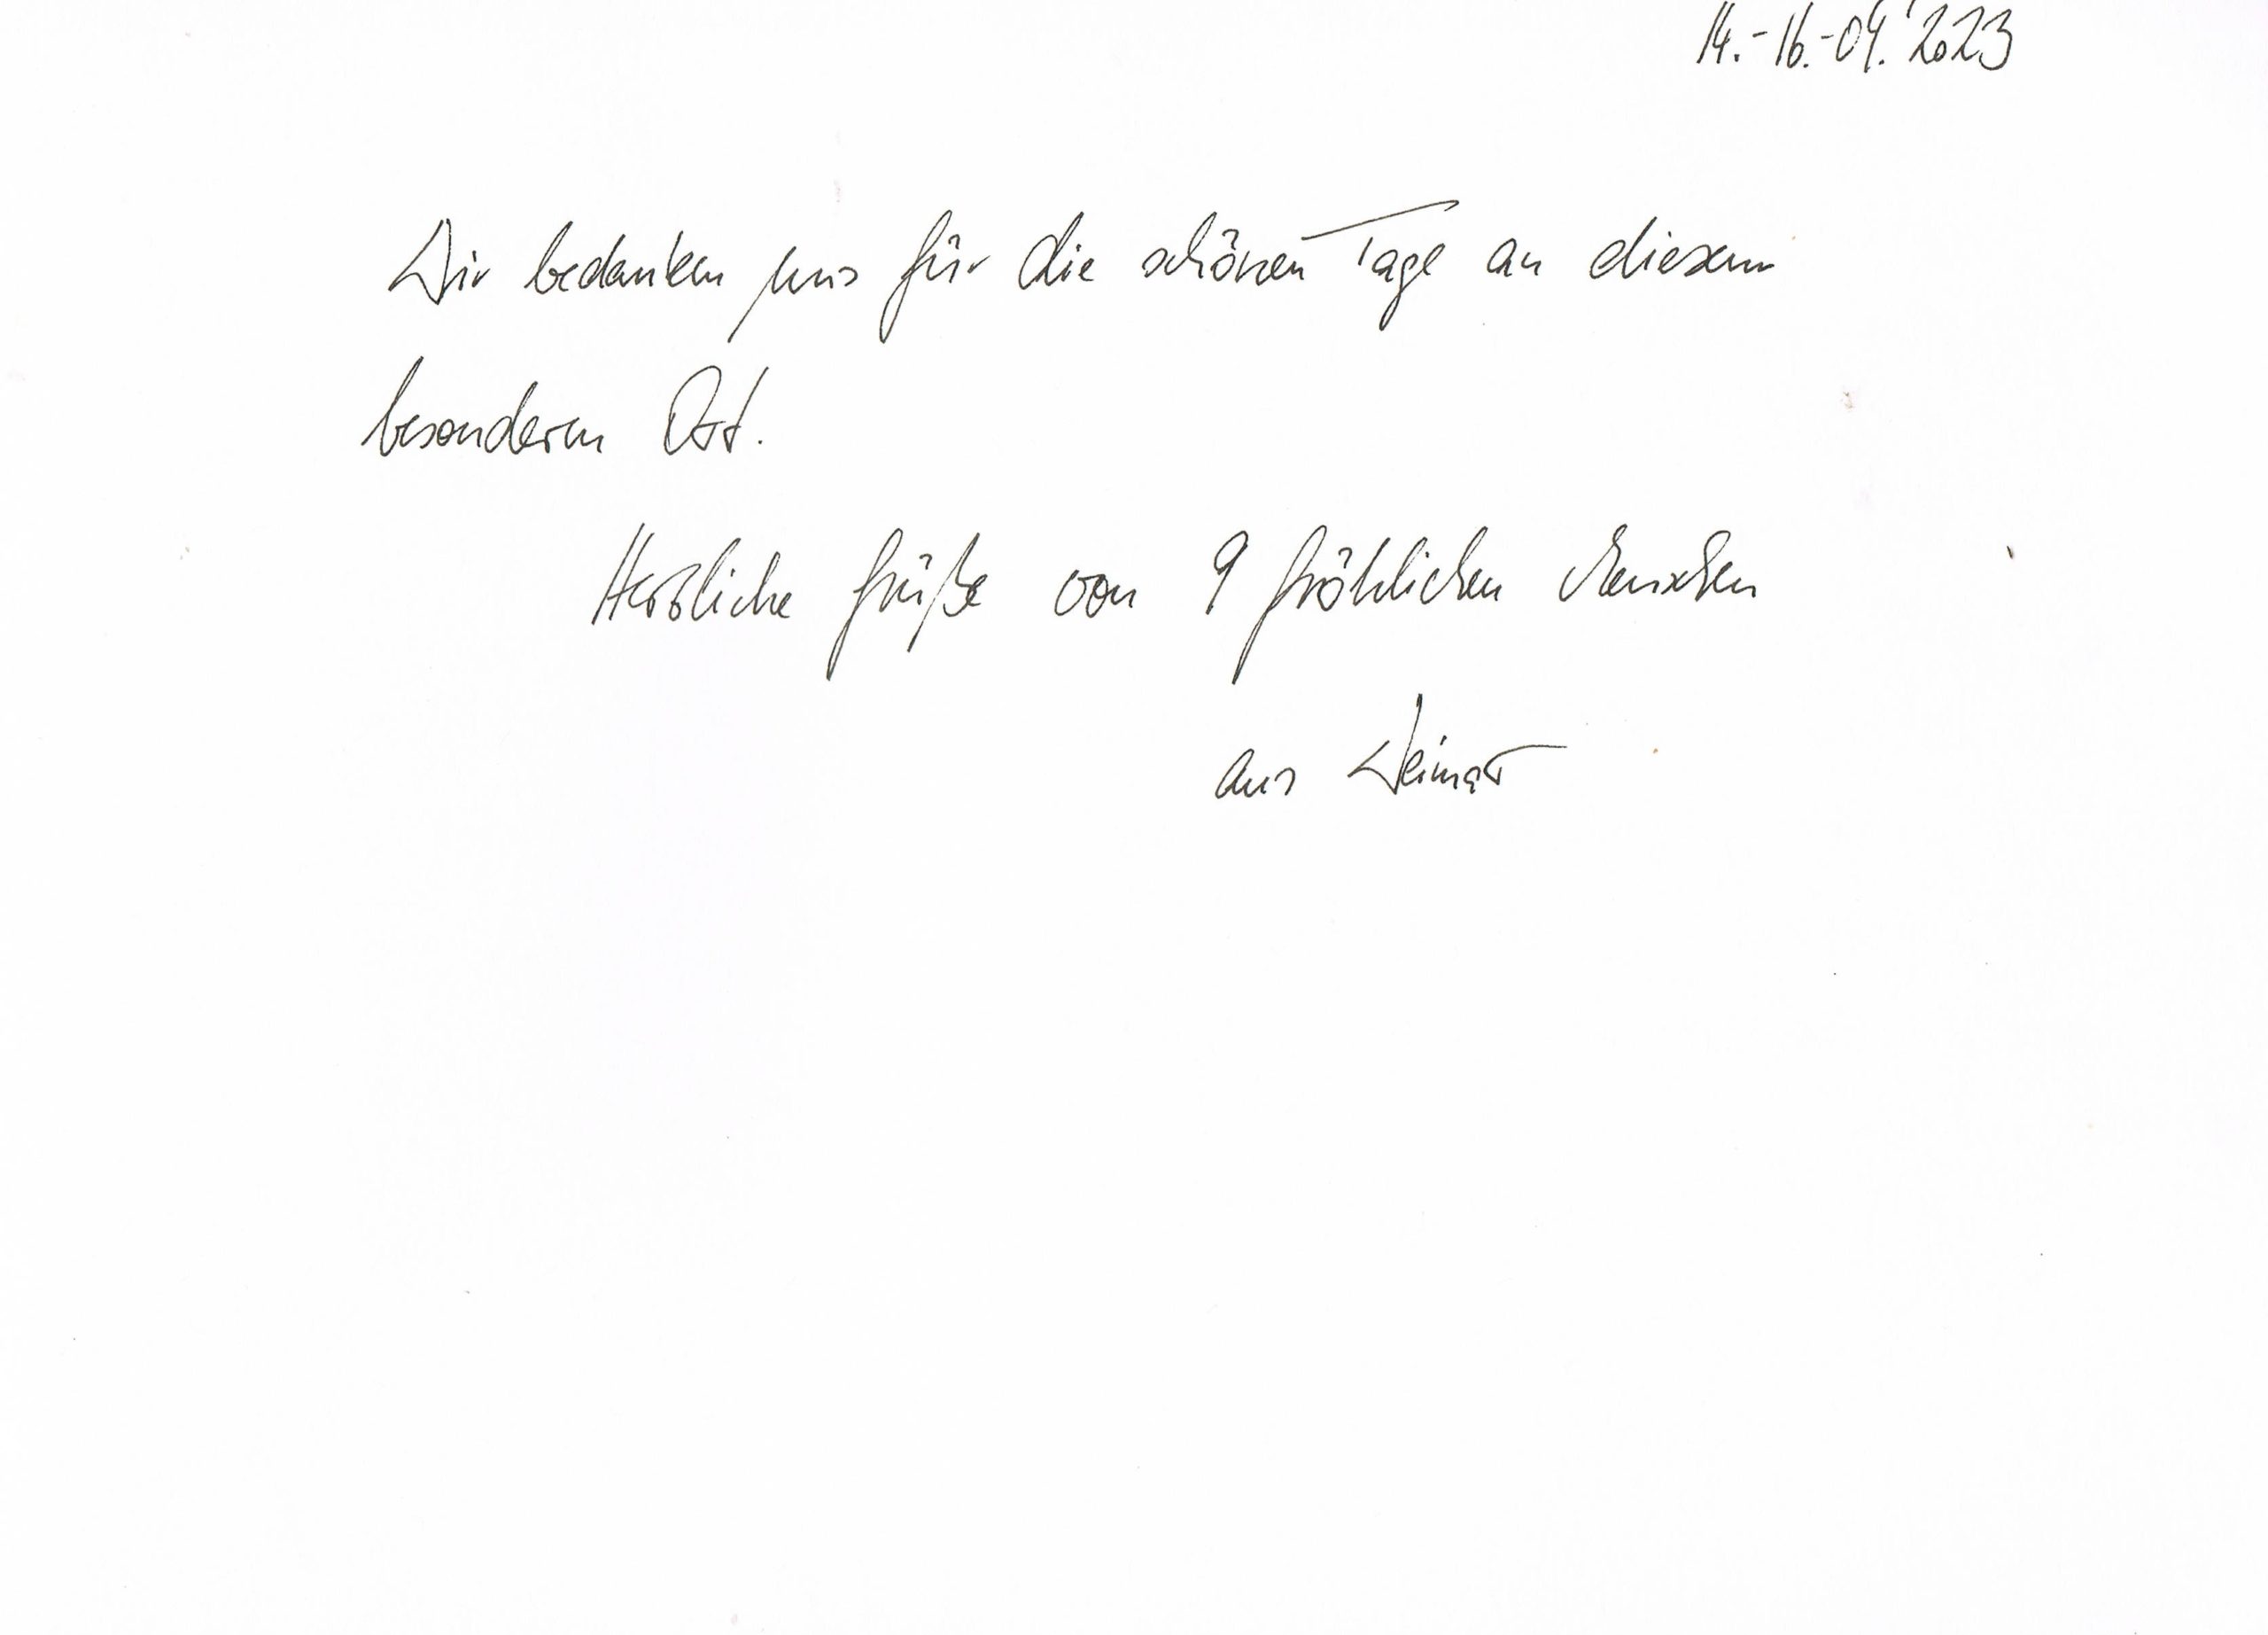 14.-16.-04.'2023
Wir bedanken uns für die schönen Tage an diesem
besonderen Ort.
Herzliche Grüße von 9 fröhlichen Menschen
aus Weimar